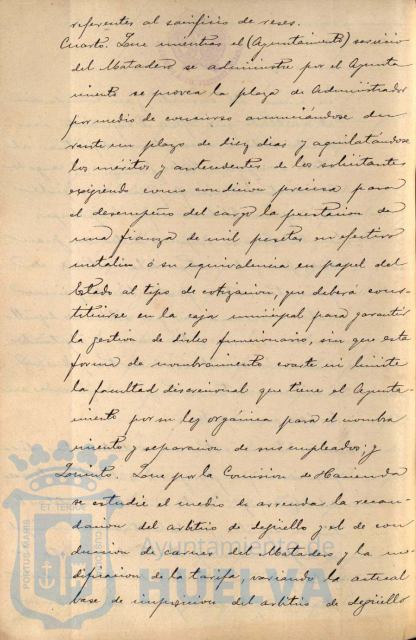 referentes al sacrificio de reses.
Cuarto. Que mientras el (Ayuntamiento) servicio
del Matadero se administre por el Ayunta
miento se provea la plaza de Administrador
por medio de concurso anunciándose du
rante un plazo de diez dias y aquilatándose
los méritos y antecedentes de los solicitantes
exigiendo como condicion precisa para
el desempeño del cargo la prestacion de
una fianza de mil pesetas en efectivo
metalico ó su equivalencia en papel del
Estado al tipo de cotizacion, que deberá cons-
tituirse en la caja municipal para garantir
la gestion de dicho funcionario, sin que esta
forma de nombramiento coarte ni limite
la facultad discrecional que tiene el Ayunta-
miento por su ley orgánica para el nombra
miento y separacion de sus empleados; y
Quinto. Que por la Comision de Hacienda
se estudie el medio de arrendar la recau-
dacion del arbitrio de degüello y el de con
duccion de carnes del Matadero y la mo
dificacion de la tarifa, variando la actual
base de imposicion del arbitrio de degüello
PORTUS MARIS ET TERRAE CUSTODIA
Ayuntamiento de
HUELVA